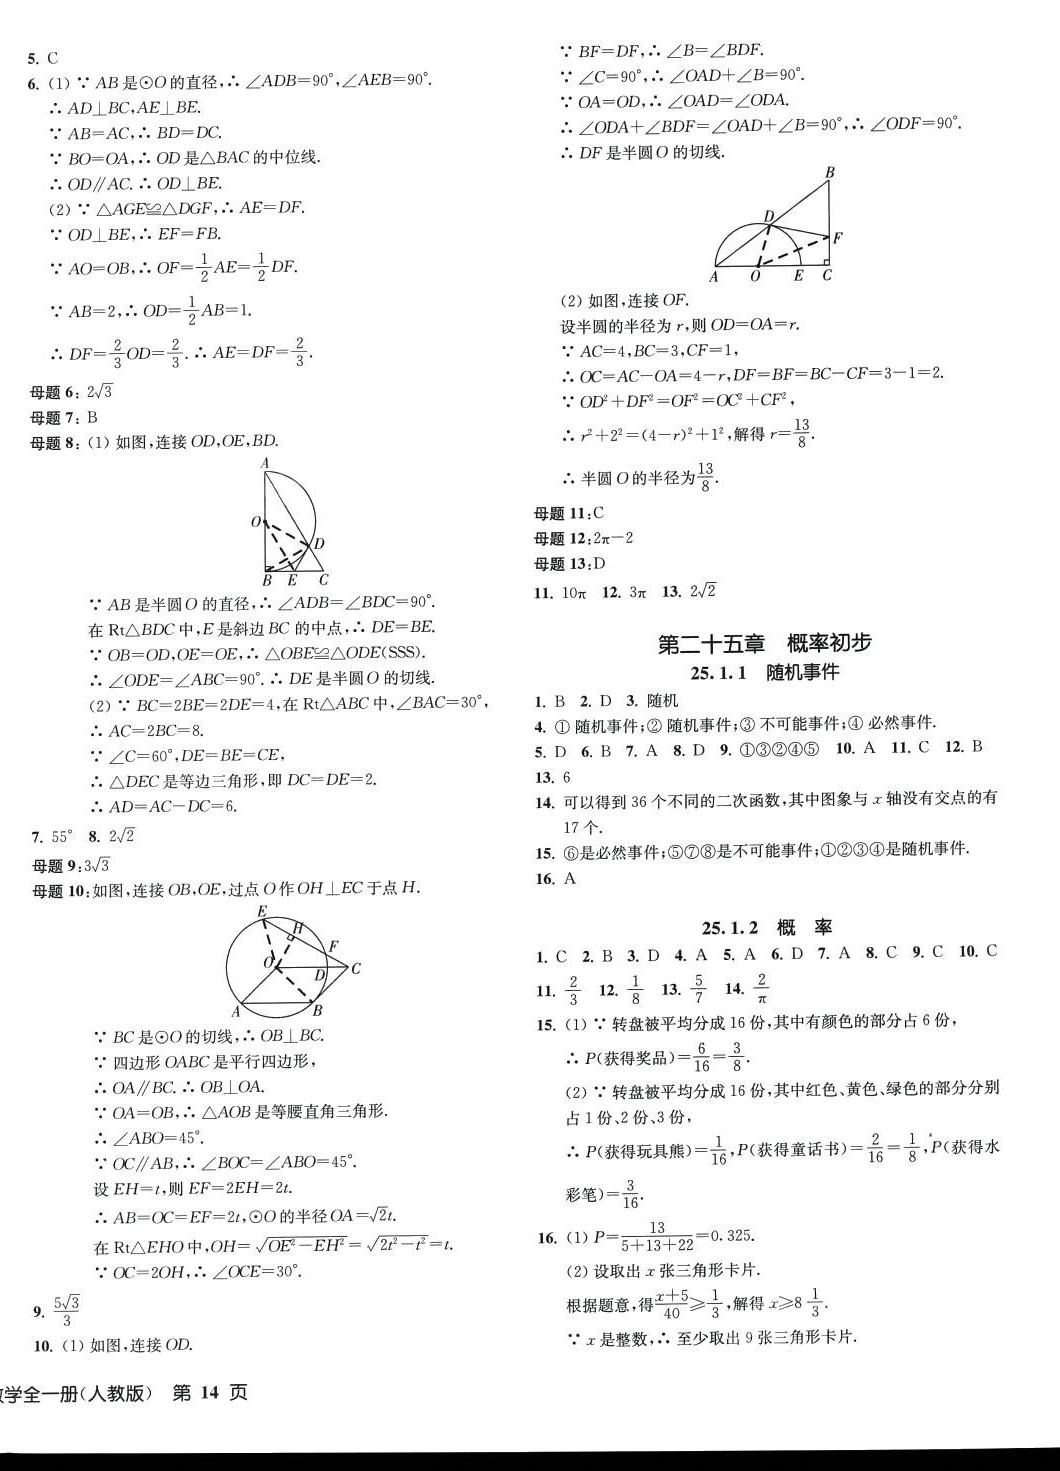 5. C
6. (1) ∵ AB 是⊙O 的直径,∴ ∠ADB=90°,∠AEB=90°.
∴ AD⊥BC,AE⊥BE.
∵ AB=AC,∴ BD=DC.
∵ BO=OA,∴ OD 是△BAC 的中位线.
∴ OD∥AC. ∴ OD⊥BE.
(2) ∵ △AGE≌△DGF,∴ AE=DF.
∵ OD⊥BE,∴ EF=FB.
∵ AO=OB,∴ OF=1/2 AE=1/2 DF.
∵ AB=2,∴ OD=1/2 AB=1.
∴ DF=2/3 OD=2/3. ∴ AE=DF=2/3.
母题 6: 2√3
母题 7: B
母题 8: (1) 如图,连接 OD,OE,BD.
A
O
D
B E C
∵ AB 是半圆 O 的直径,∴ ∠ADB=∠BDC=90°.
在 Rt△BDC 中,E 是斜边 BC 的中点,∴ DE=BE.
∵ OB=OD,OE=OE,∴ △OBE≌△ODE(SSS).
∴ ∠ODE=∠ABC=90°. ∴ DE 是半圆 O 的切线.
(2) ∵ BC=2BE=2DE=4,在 Rt△ABC 中,∠BAC=30°,
∴ AC=2BC=8.
∵ ∠C=60°,DE=BE=CE,
∴ △DEC 是等边三角形,即 DC=DE=2.
∴ AD=AC-DC=6.
7. 55° 8. 2√2
母题 9:3√3
母题 10:如图,连接 OB,OE,过点 O 作 OH⊥EC 于点 H.
E
H
F
O
D
C
A
B
∵ BC 是⊙O 的切线,∴ OB⊥BC.
∵ 四边形 OABC 是平行四边形,
∴ OA∥BC. ∴ OB⊥OA.
∵ OA=OB,∴ △AOB 是等腰直角三角形.
∴ ∠ABO=45°.
∵ OC∥AB,∴ ∠BOC=∠ABO=45°.
设 EH=t,则 EF=2EH=2t.
∴ AB=OC=EF=2t,⊙O 的半径 OA=√2t.
在 Rt△EHO 中,OH=√(OE²-EH²)=√(2t²-t²)=t.
∵ OC=2OH,∴ ∠OCE=30°.
9. 5√3/3
10. (1) 如图,连接 OD.
∵ BF=DF,∴ ∠B=∠BDF.
∵ ∠C=90°,∴ ∠OAD+∠B=90°.
∵ OA=OD,∴ ∠OAD=∠ODA.
∴ ∠ODA+∠BDF=∠OAD+∠B=90°,∴ ∠ODF=90°.
∴ DF 是半圆 O 的切线.
B
D
F
A O E C
(2) 如图,连接 OF.
设半圆的半径为 r,则 OD=OA=r.
∵ AC=4,BC=3,CF=1,
∴ OC=AC-OA=4-r,DF=BF=BC-CF=3-1=2.
∵ OD²+DF²=OF²=OC²+CF²,
∴ r²+2²=(4-r)²+1²,解得 r=13/8.
∴ 半圆 O 的半径为13/8.
母题 11:C
母题 12:2π-2
母题 13:D
11. 10π 12. 3π 13. 2√2
第二十五章 概率初步
25.1.1 随机事件
1. B 2. D 3. 随机
4. ① 随机事件;② 随机事件;③ 不可能事件;④ 必然事件.
5. D 6. B 7. A 8. D 9. ①③②④⑤ 10. A 11. C 12. B
13. 6
14. 可以得到 36 个不同的二次函数,其中图象与 x 轴没有交点的有
17 个.
15. ⑥是必然事件;⑤⑦⑧是不可能事件;①②③④是随机事件.
16. A
25.1.2 概 率
1. C 2. B 3. D 4. A 5. A 6. D 7. A 8. C 9. C 10. C
11. 2/3 12. 1/8 13. 5/7 14. 2/π
15. (1) ∵ 转盘被平均分成 16 份,其中有颜色的部分占 6 份,
∴ P(获得奖品)=6/16=3/8.
(2) ∵ 转盘被平均分成 16 份,其中红色、黄色、绿色的部分分别
占 1 份、2 份、3 份,
∴ P(获得玩具熊)=1/16,P(获得童话书)=2/16=1/8,P(获得水
彩笔)=3/16.
16. (1) P=13/(5+13+22)=0.325.
(2) 设取出 x 张三角形卡片.
根据题意,得(x+5)/40≥1/3,解得 x≥8 1/3.
∵ x 是整数,∴ 至少取出 9 张三角形卡片.
学全一册(人教版) 第 14 页